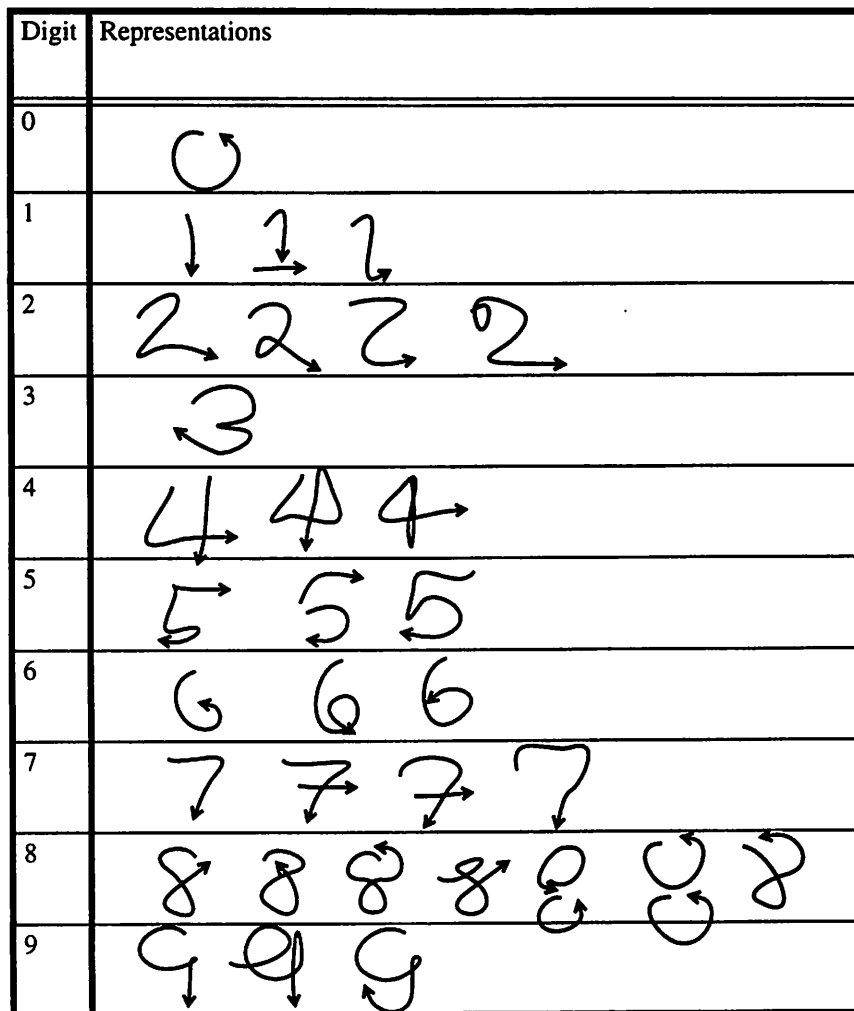 Digit Representations
0 0
1 1 1 1
2 2 2 2 2
3 3
4 4 4 4
5 5 5 5
6 6 6 6
7 7 7 7 7
8 8 8 8 8 8 8 8
9 9 9 9